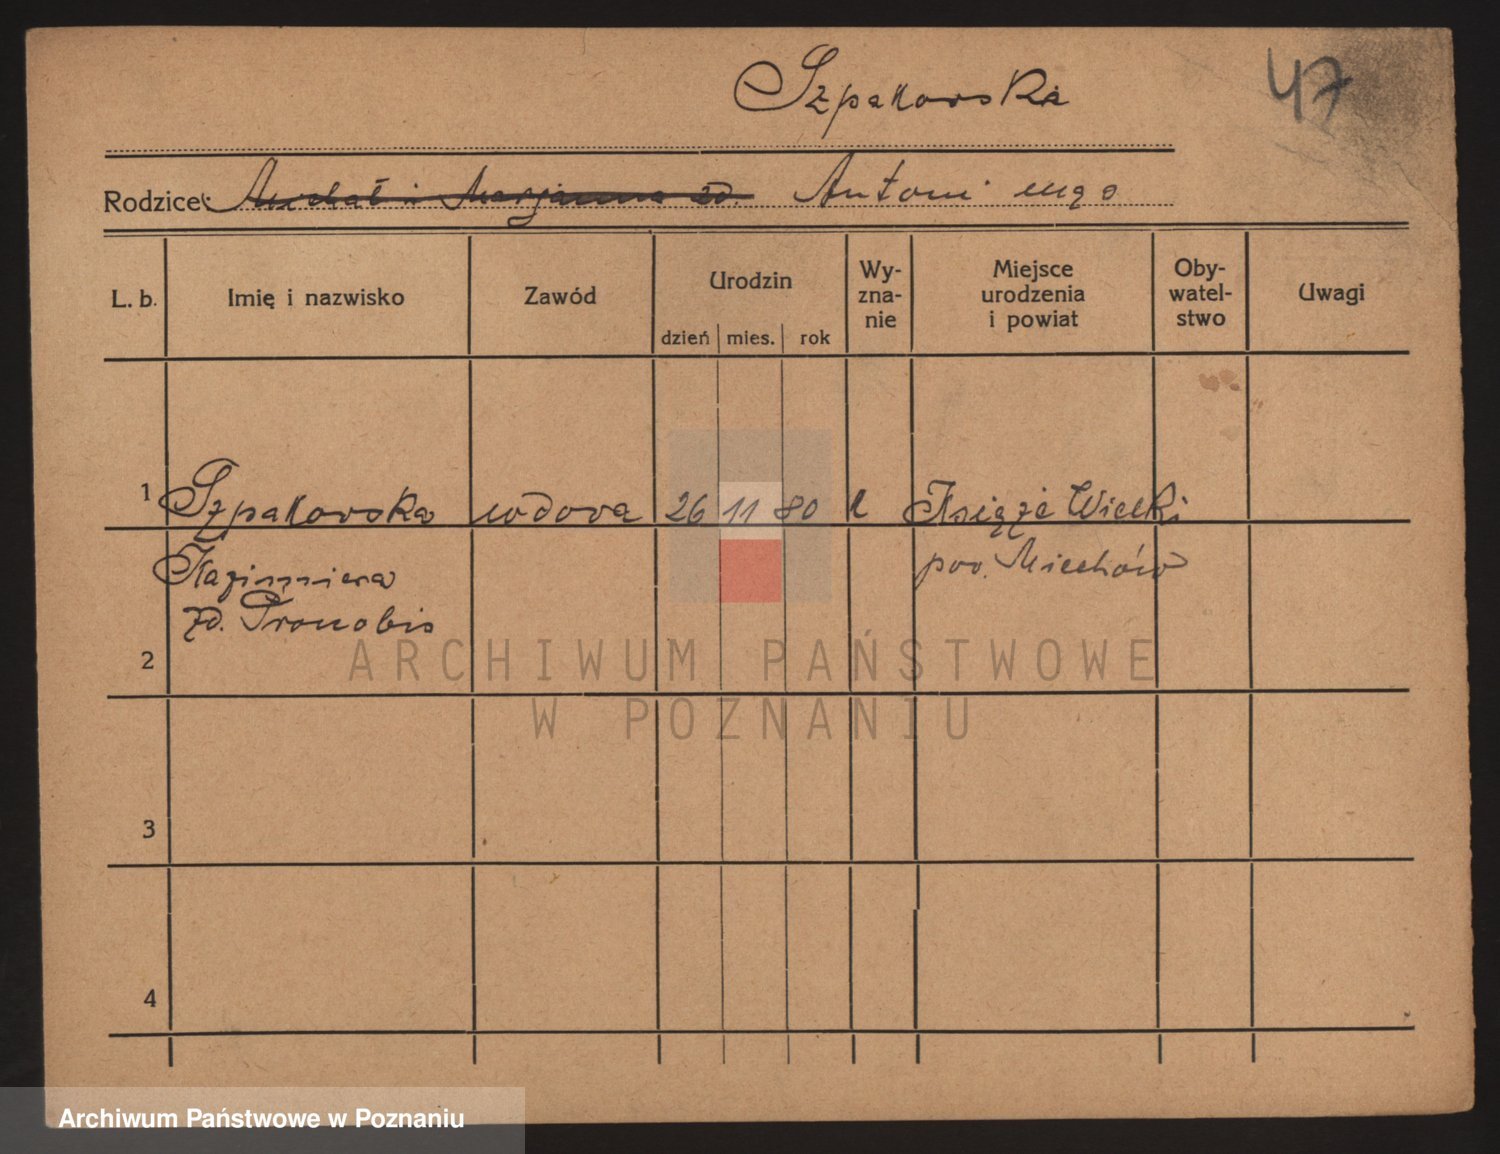 Szpakowska
47
Rodzice: Michał i Marjanna zd. Antoni
L. b.
Imię i nazwisko
Zawód
Urodzin
dzień mies. rok
Wy-
zna-
nie
Miejsce
urodzenia
i powiat
Oby-
watel-
stwo
Uwagi
1 Szpakowska wdowa 26 11 80 Książe Wielki
Kazimiera pow. Miechów
zd. Pronobis
2
3
4
ARCHIWUM PAŃSTWOWE
W POZNANIU
Archiwum Państwowe w Poznaniu